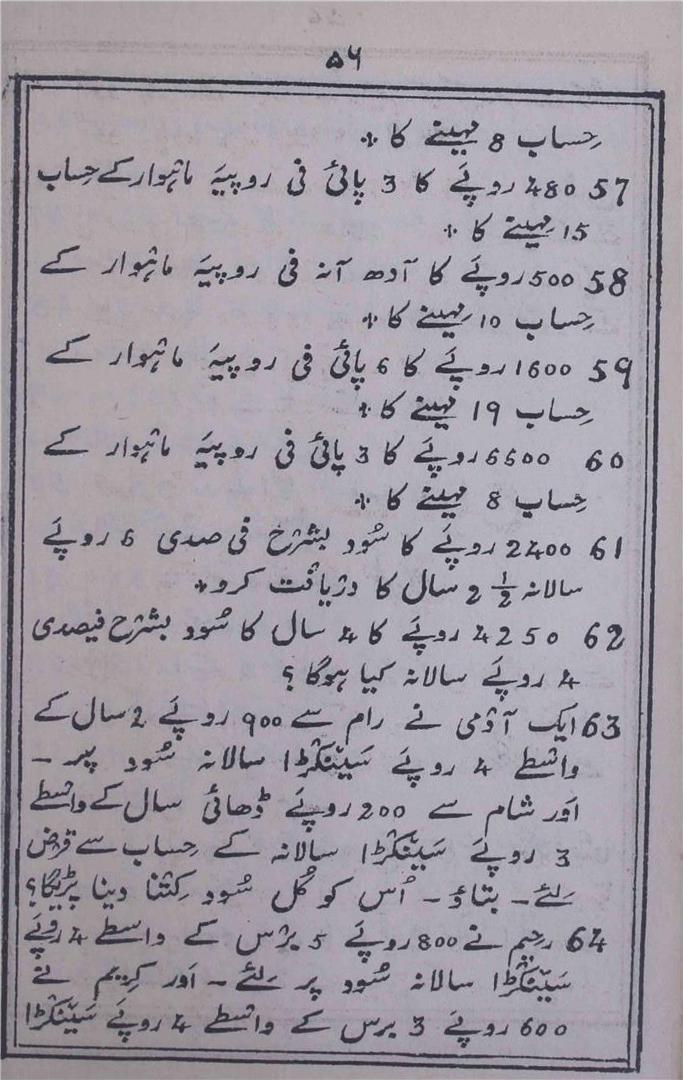 ۵۶
حِساب 8 مہینے کا *
57 480 روپَے کا 3 پائی فی روپیَہ ماہوار کے حِساب
15 مہینے کا *
58 500 روپَے کا آدھ آنہ فی روپیَہ ماہوار کے
حِساب 10 مہینے کا *
59 1600 روپَے کا 6 پائی فی روپیَہ ماہوار کے
حِساب 19 مہینے کا *
60 6600 روپَے کا 3 پائی فی روپیَہ ماہوار کے
حِساب 8 مہینے کا *
61 2400 روپَے کا سُود بشرَح فی صدی 6 روپَے
سالانہ 2 1/2 سال کا دریافت کرو *
62 4250 روپَے کا 4 سال کا سُود بشرَح فیصدی
4 روپَے سالانہ کیا ہوگا ؟
63 ایک آدمی نے رام سے 900 روپَے 2 سال کے
واسطے 4 روپَے سَینکڑا سالانہ سُود پر ۔
اَور شام سے 200 روپَے ڈھائی سال کے واسطے
3 روپَے سَینکڑا سالانہ کے حِساب سے قرض
لِئے ۔ بتاؤ ۔ اُس کو کُل سُود کِتنا دینا پڑیگا ؟
64 رحیم نے 800 روپَے 5 برس کے واسطے 4 روپَے
سَینکڑا سالانہ سُود پر لِئے ۔ اَور کریم نے
600 روپَے 3 برس کے واسطے 4 روپَے سَینکڑا